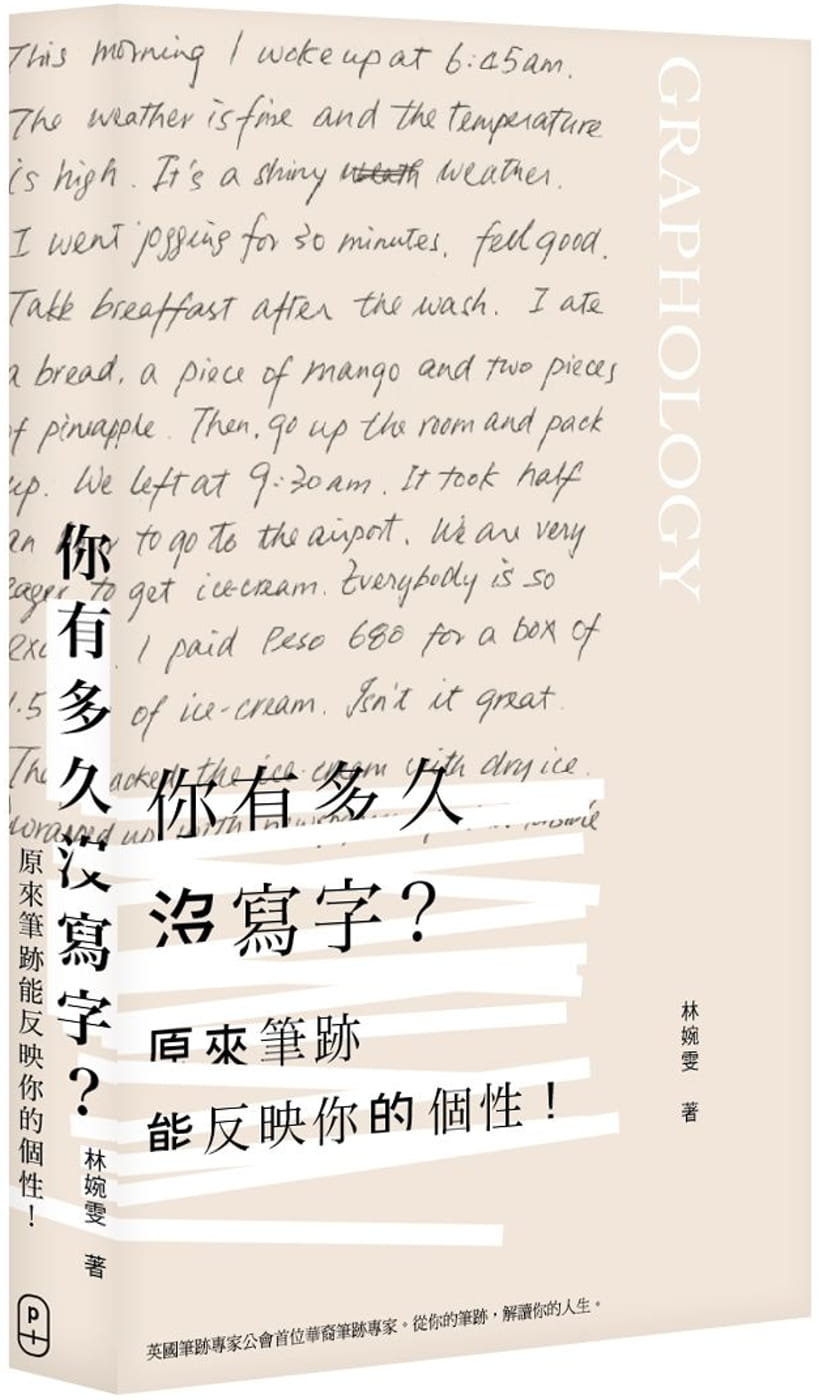 This morning I woke up at 6:45am.
The weather is fine and the temperature
is high. It's a shiny weath weather.
I went jogging for 30 minutes. fell good.
Takk breaffast after the wash. I ate
a bread, a piece of mango and two pieces
of pineapple. Then, go up the room and pack
up. We left at 9:30am. It took half
an to go to the airport. We are very
eager to get ice-cream. Everybody is so
I paid Peso 680 for a box of
1.5 of ice-cream. Isn't it great.
the ice-cream with dry ice.
up with
GRAPHOLOGY
你有多久
沒寫字?
原來筆跡
能反映你的個性!
林婉雯 著
英國筆跡專家公會首位華裔筆跡專家。從你的筆跡,解讀你的人生。
你有多久沒寫字?
原來筆跡能反映你的個性!
林婉雯 著
p+